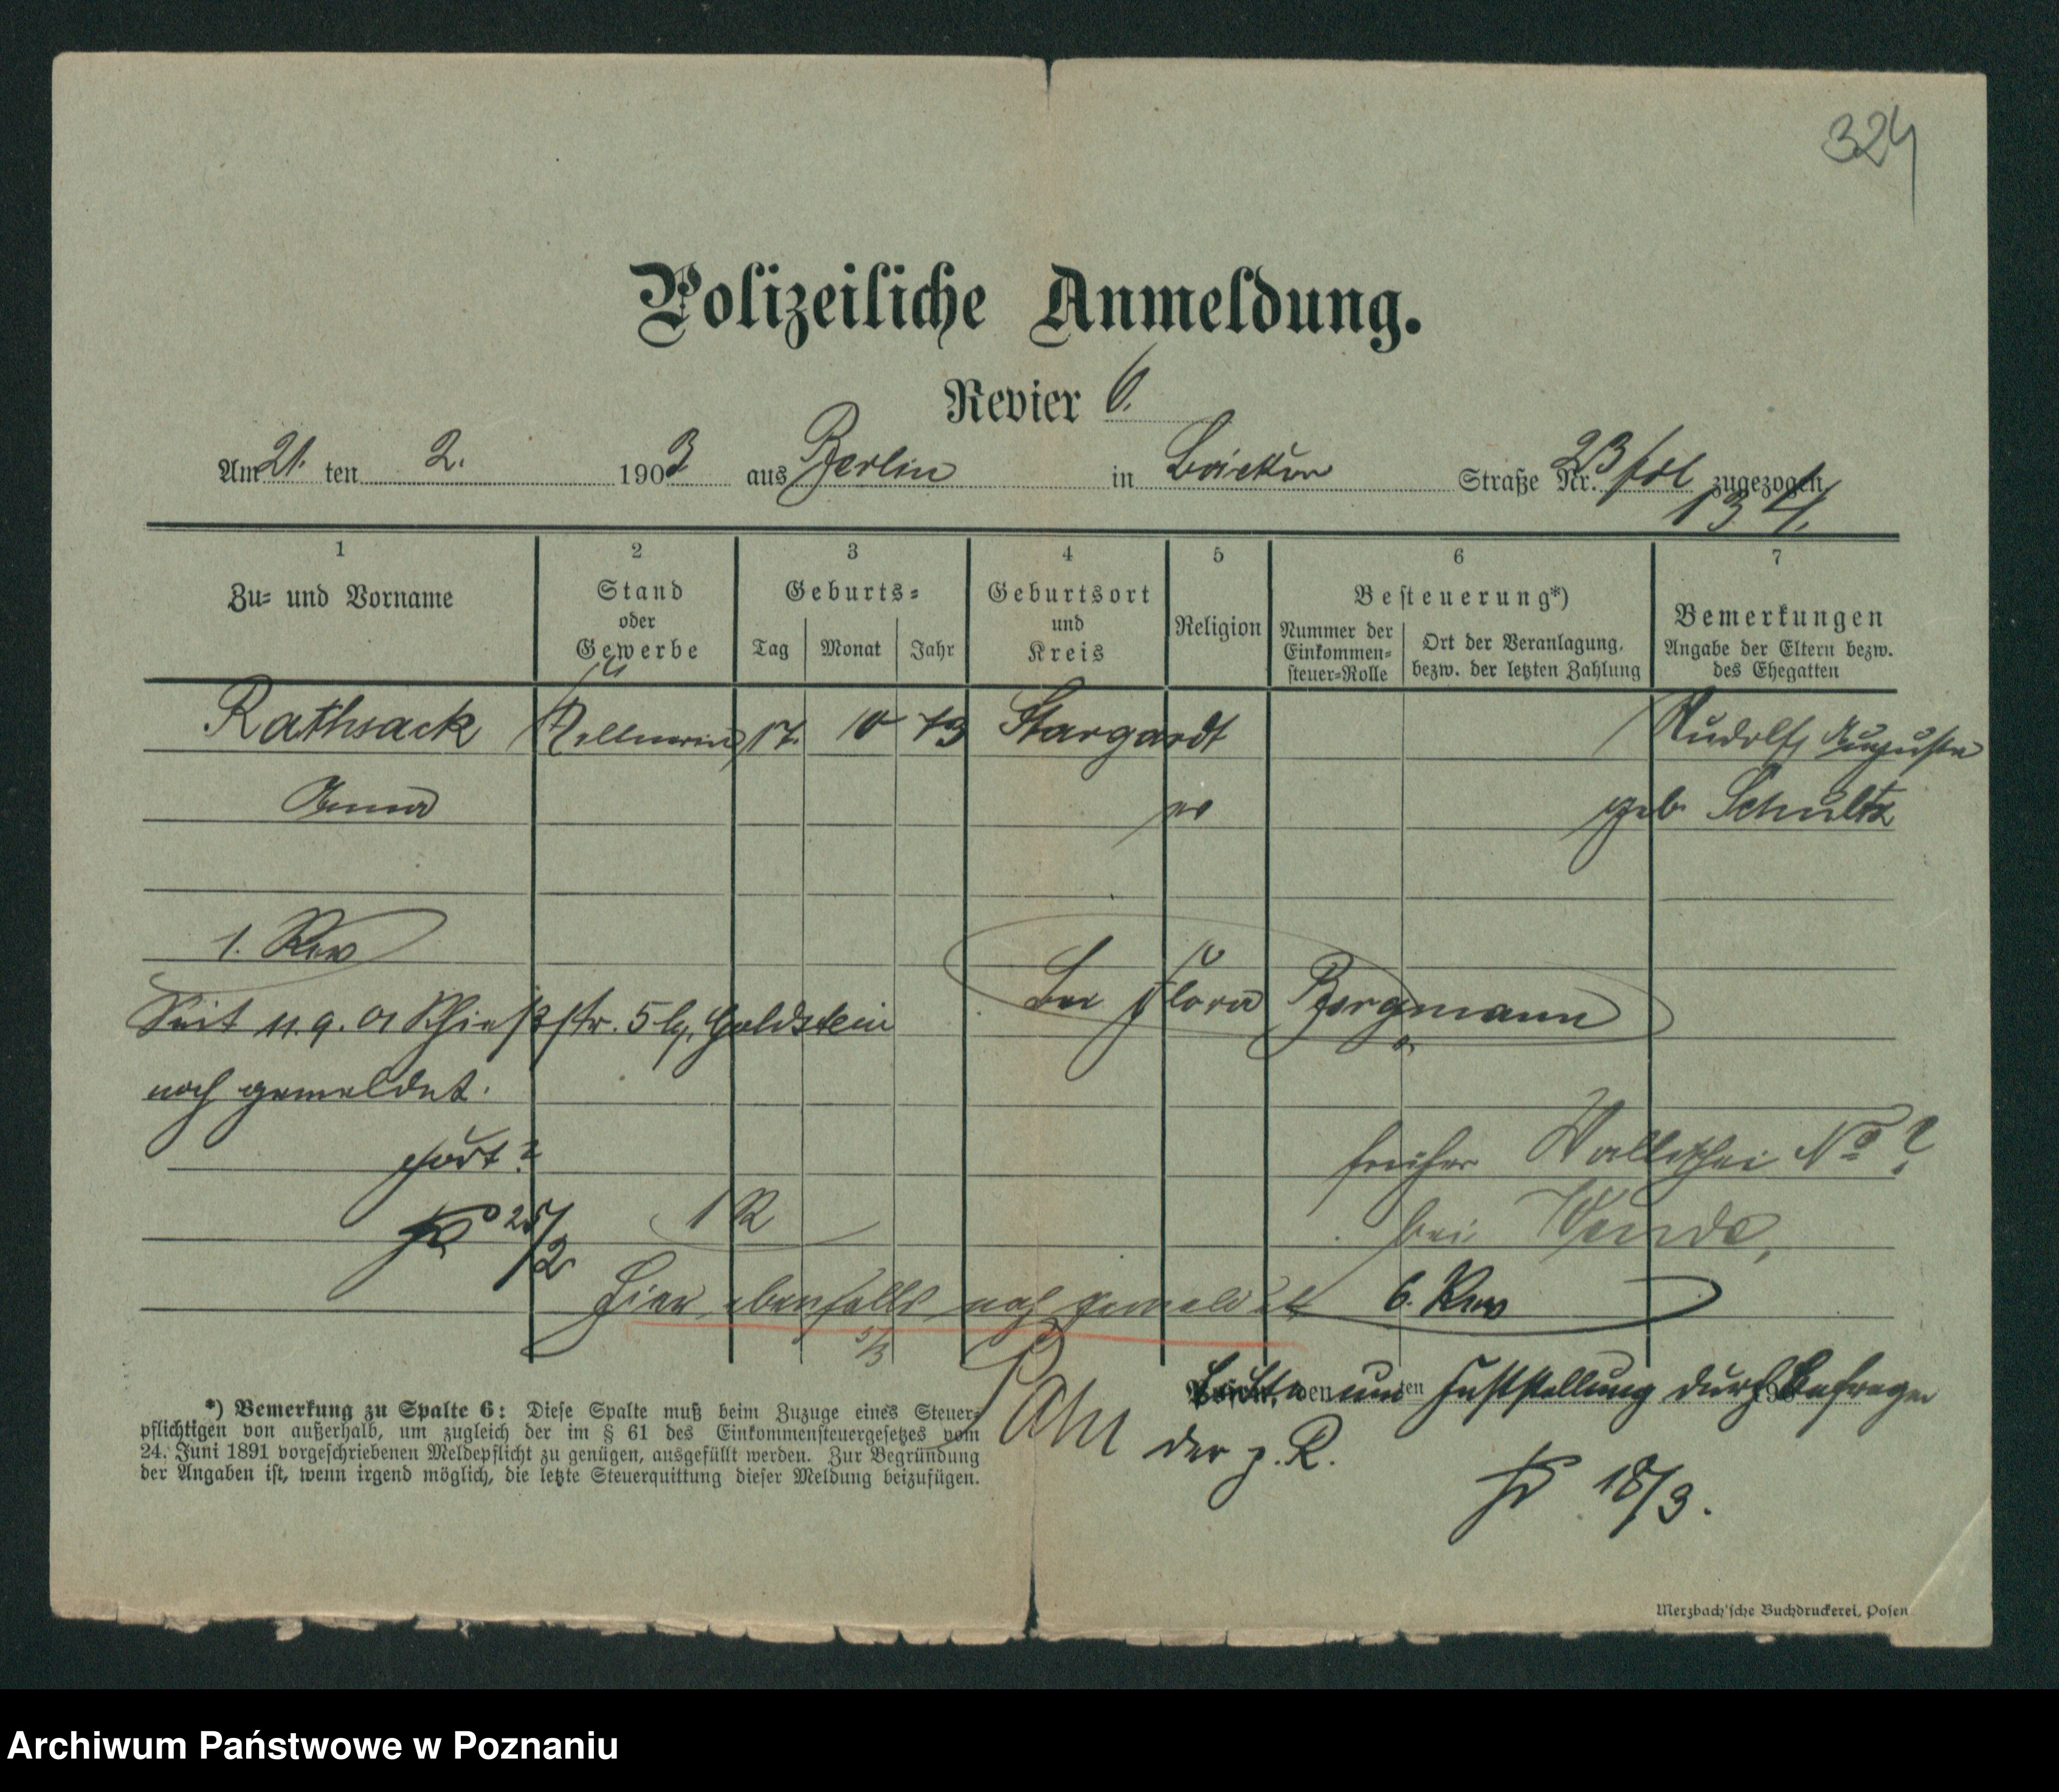 324
Polizeiliche Anmeldung.
Revier 6.
Am 21. ten 2. 1903 aus Berlin in Straße Nr. 23 zugezogen
134.
1 2 3 4 5 6 7
Zu- und Vorname
Stand oder Gewerbe
Geburts-
Tag Monat Jahr
Geburtsort und Kreis
Religion
Besteuerung*)
Nummer der Einkommen-steuer-Rolle
Ort der Veranlagung, bezw. der letzten Zahlung
Bemerkungen
Angabe der Eltern bezw. des Ehegatten
Rathsack Kellnerin 17. 10 73 Stargardt Rudolf, Auguste
Anna geb. Schultz
1. Rev
bei Flora Bergmann
Seit 11.9.01 Schießstr. 5 Goldstein
noch gemeldet.
fort?
früher Wallischei No ?
25/2
1 R
bei Wende,
Hier ebenfalls noch gemeldet
6. Rev
5/3
Posen, den ten 190
Bitte um Feststellung durch Befragen
der p. R.
18/3.
*) Bemerkung zu Spalte 6: Diese Spalte muß beim Zuzuge eines Steuer-
pflichtigen von außerhalb, um zugleich der im § 61 des Einkommensteuergesetzes vom
24. Juni 1891 vorgeschriebenen Meldepflicht zu genügen, ausgefüllt werden. Zur Begründung
der Angaben ist, wenn irgend möglich, die letzte Steuerquittung dieser Meldung beizufügen.
Merzbach'sche Buchdruckerei, Posen
Archiwum Państwowe w Poznaniu